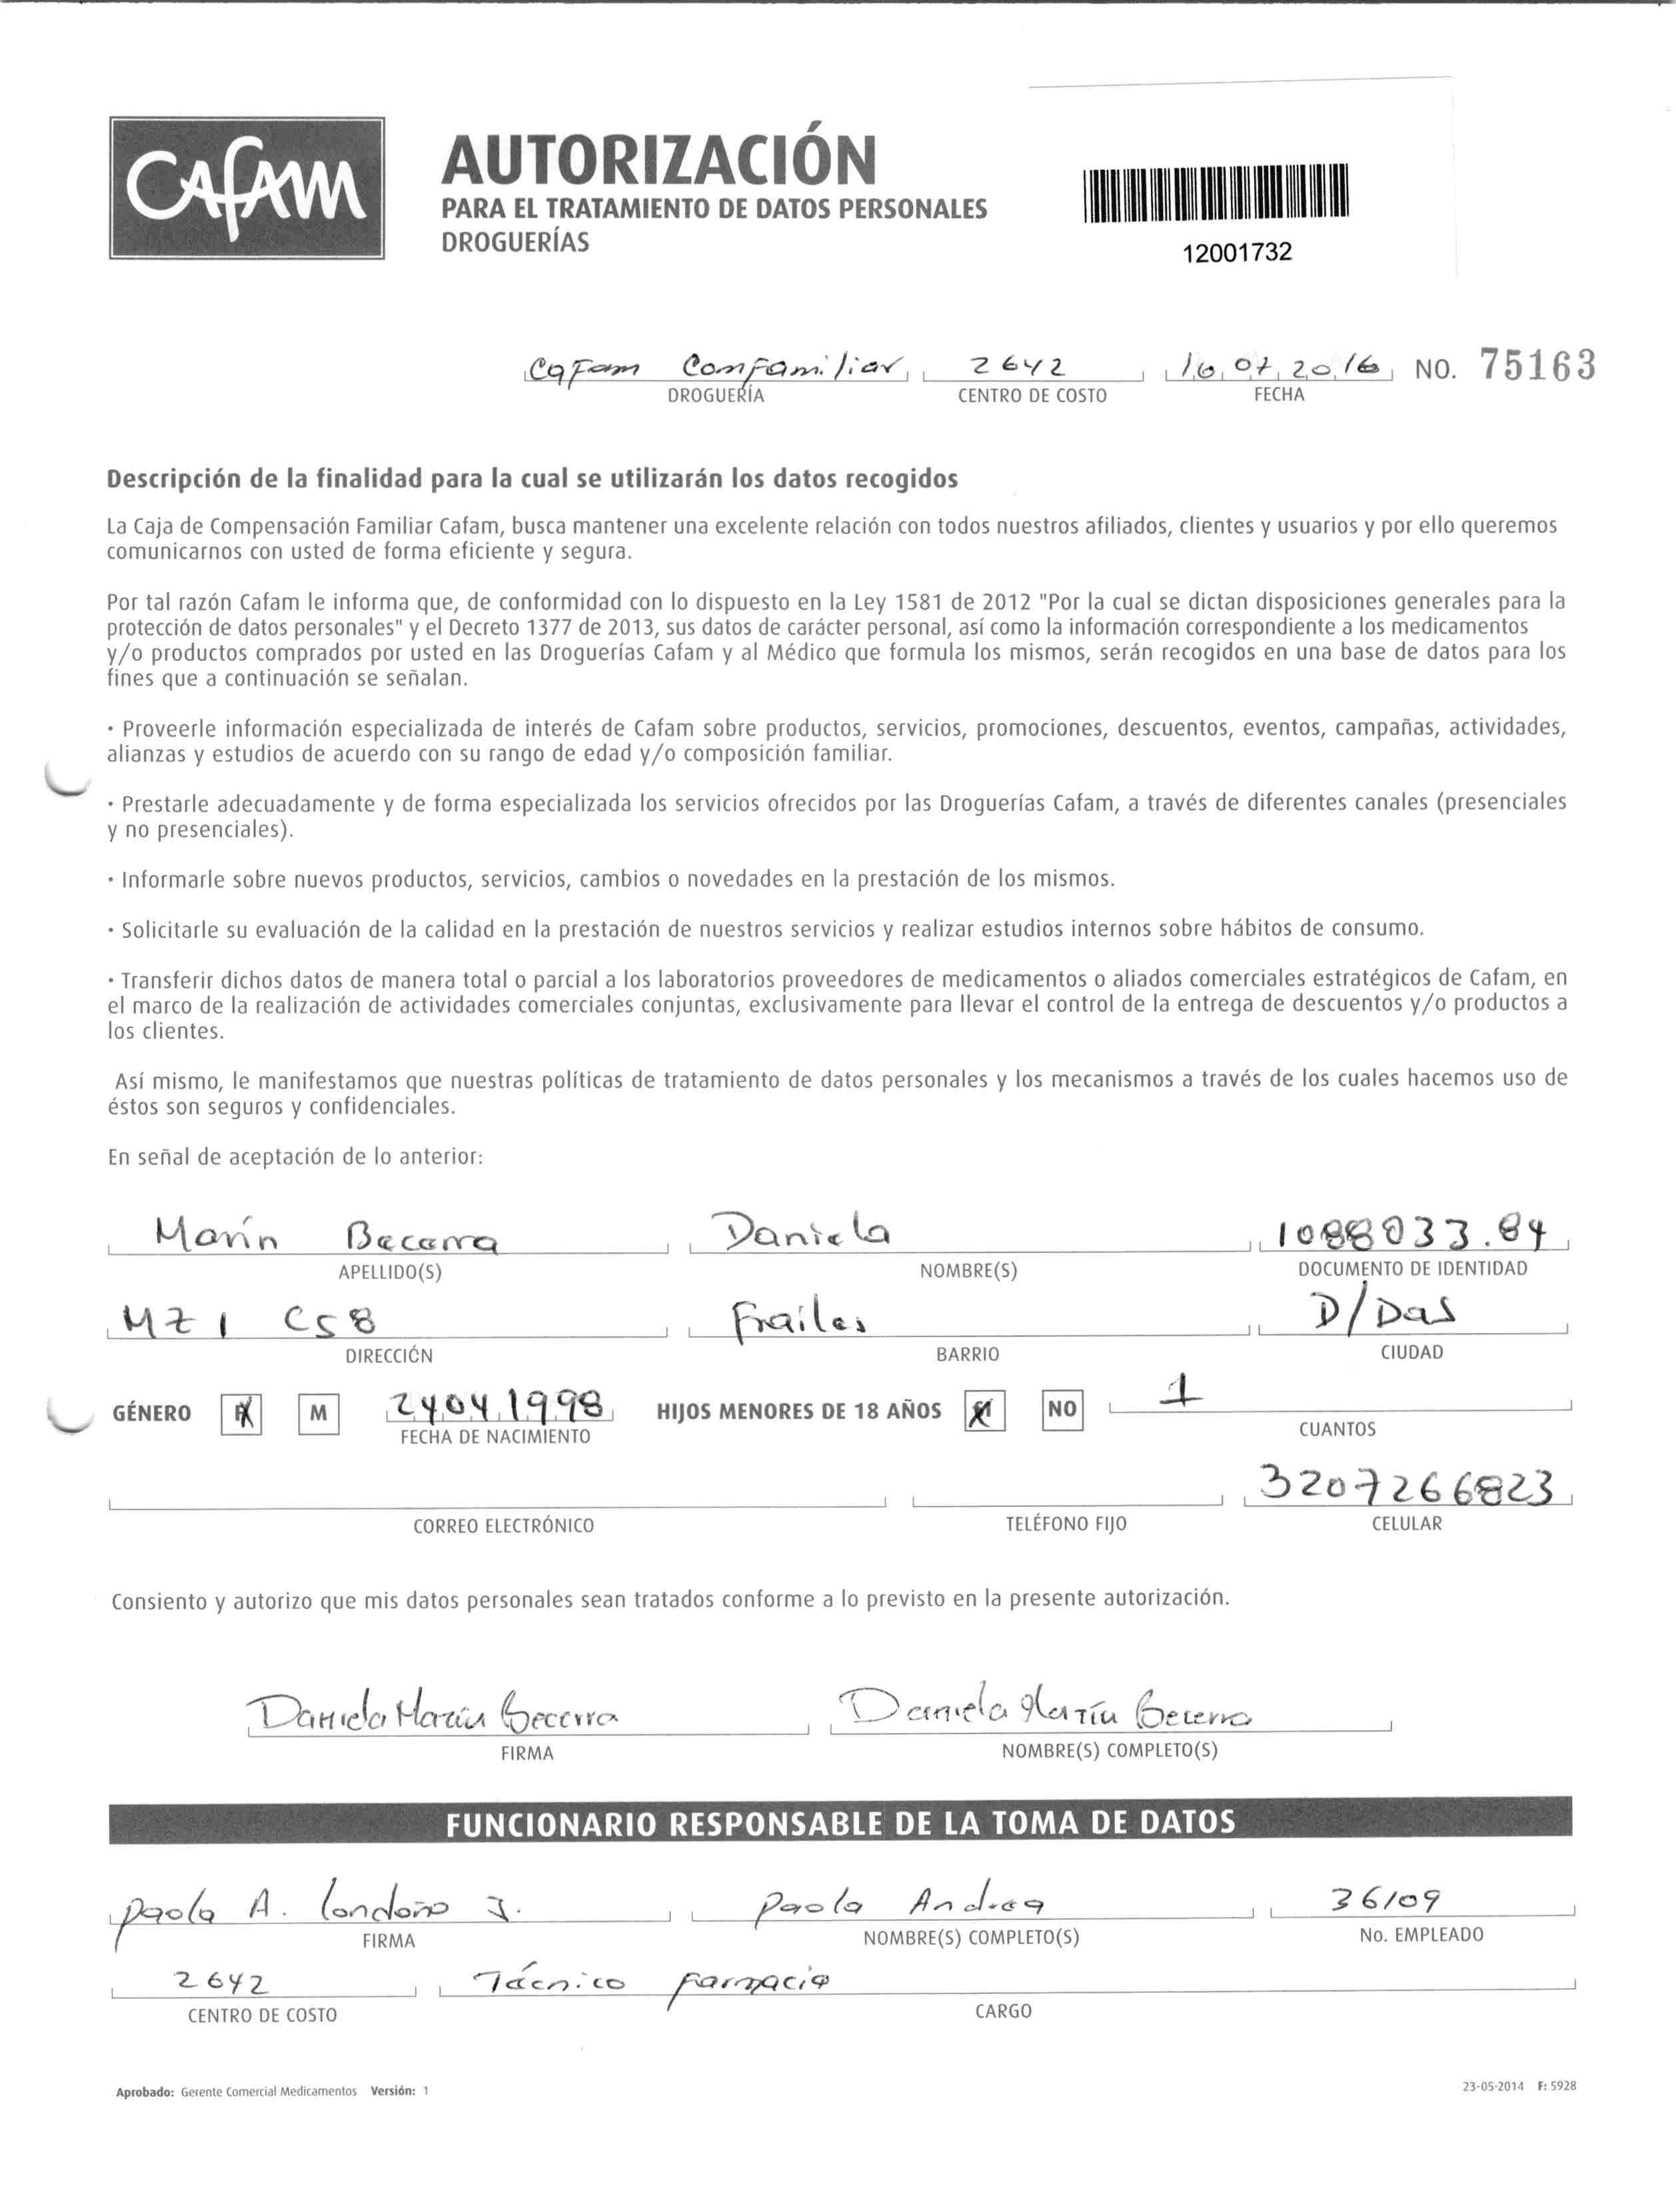 CAFAM
AUTORIZACIÓN
PARA EL TRATAMIENTO DE DATOS PERSONALES
DROGUERÍAS
12001732
Cafam Comfamiliar 2642 16 07 2016 NO. 75163
DROGUERÍA CENTRO DE COSTO FECHA
Descripción de la finalidad para la cual se utilizarán los datos recogidos
La Caja de Compensación Familiar Cafam, busca mantener una excelente relación con todos nuestros afiliados, clientes y usuarios y por ello queremos
comunicarnos con usted de forma eficiente y segura.
Por tal razón Cafam le informa que, de conformidad con lo dispuesto en la Ley 1581 de 2012 "Por la cual se dictan disposiciones generales para la
protección de datos personales" y el Decreto 1377 de 2013, sus datos de carácter personal, así como la información correspondiente a los medicamentos
y/o productos comprados por usted en las Droguerías Cafam y al Médico que formula los mismos, serán recogidos en una base de datos para los
fines que a continuación se señalan.
· Proveerle información especializada de interés de Cafam sobre productos, servicios, promociones, descuentos, eventos, campañas, actividades,
alianzas y estudios de acuerdo con su rango de edad y/o composición familiar.
· Prestarle adecuadamente y de forma especializada los servicios ofrecidos por las Droguerías Cafam, a través de diferentes canales (presenciales
y no presenciales).
· Informarle sobre nuevos productos, servicios, cambios o novedades en la prestación de los mismos.
· Solicitarle su evaluación de la calidad en la prestación de nuestros servicios y realizar estudios internos sobre hábitos de consumo.
· Transferir dichos datos de manera total o parcial a los laboratorios proveedores de medicamentos o aliados comerciales estratégicos de Cafam, en
el marco de la realización de actividades comerciales conjuntas, exclusivamente para llevar el control de la entrega de descuentos y/o productos a
los clientes.
Así mismo, le manifestamos que nuestras políticas de tratamiento de datos personales y los mecanismos a través de los cuales hacemos uso de
éstos son seguros y confidenciales.
En señal de aceptación de lo anterior:
Marín Becerra Daniela 1088033.84
APELLIDO(S) NOMBRE(S) DOCUMENTO DE IDENTIDAD
MZ 1 CS 8 Frailes D/Das
DIRECCIÓN BARRIO CIUDAD
GÉNERO F M 24041998 HIJOS MENORES DE 18 AÑOS SI NO 1
FECHA DE NACIMIENTO CUANTOS
3207266823
CORREO ELECTRÓNICO TELÉFONO FIJO CELULAR
Consiento y autorizo que mis datos personales sean tratados conforme a lo previsto en la presente autorización.
Daniela Marín Becerra Daniela Marín Becerra
FIRMA NOMBRE(S) COMPLETO(S)
FUNCIONARIO RESPONSABLE DE LA TOMA DE DATOS
Paola A. Londoño J. Paola Andrea 36109
FIRMA NOMBRE(S) COMPLETO(S) No. EMPLEADO
2642 Técnico farmacia
CENTRO DE COSTO CARGO
Aprobado: Gerente Comercial Medicamentos Versión: 1 23-05-2014 F: 5928